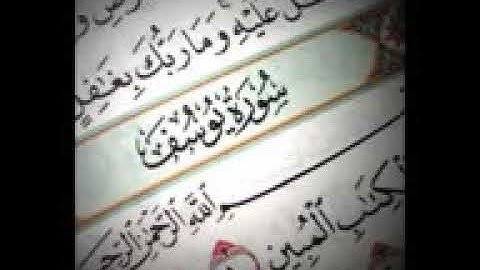 عَلَيْهِ وَمَا رَبُّكَ بِغَٰفِلٍ
سُورَةُ يُوسُفَ
بِسْمِ ٱللَّهِ ٱلرَّحْمَٰنِ ٱلرَّحِيمِ
ٱلْكِتَٰبِ ٱلْمُبِينِ